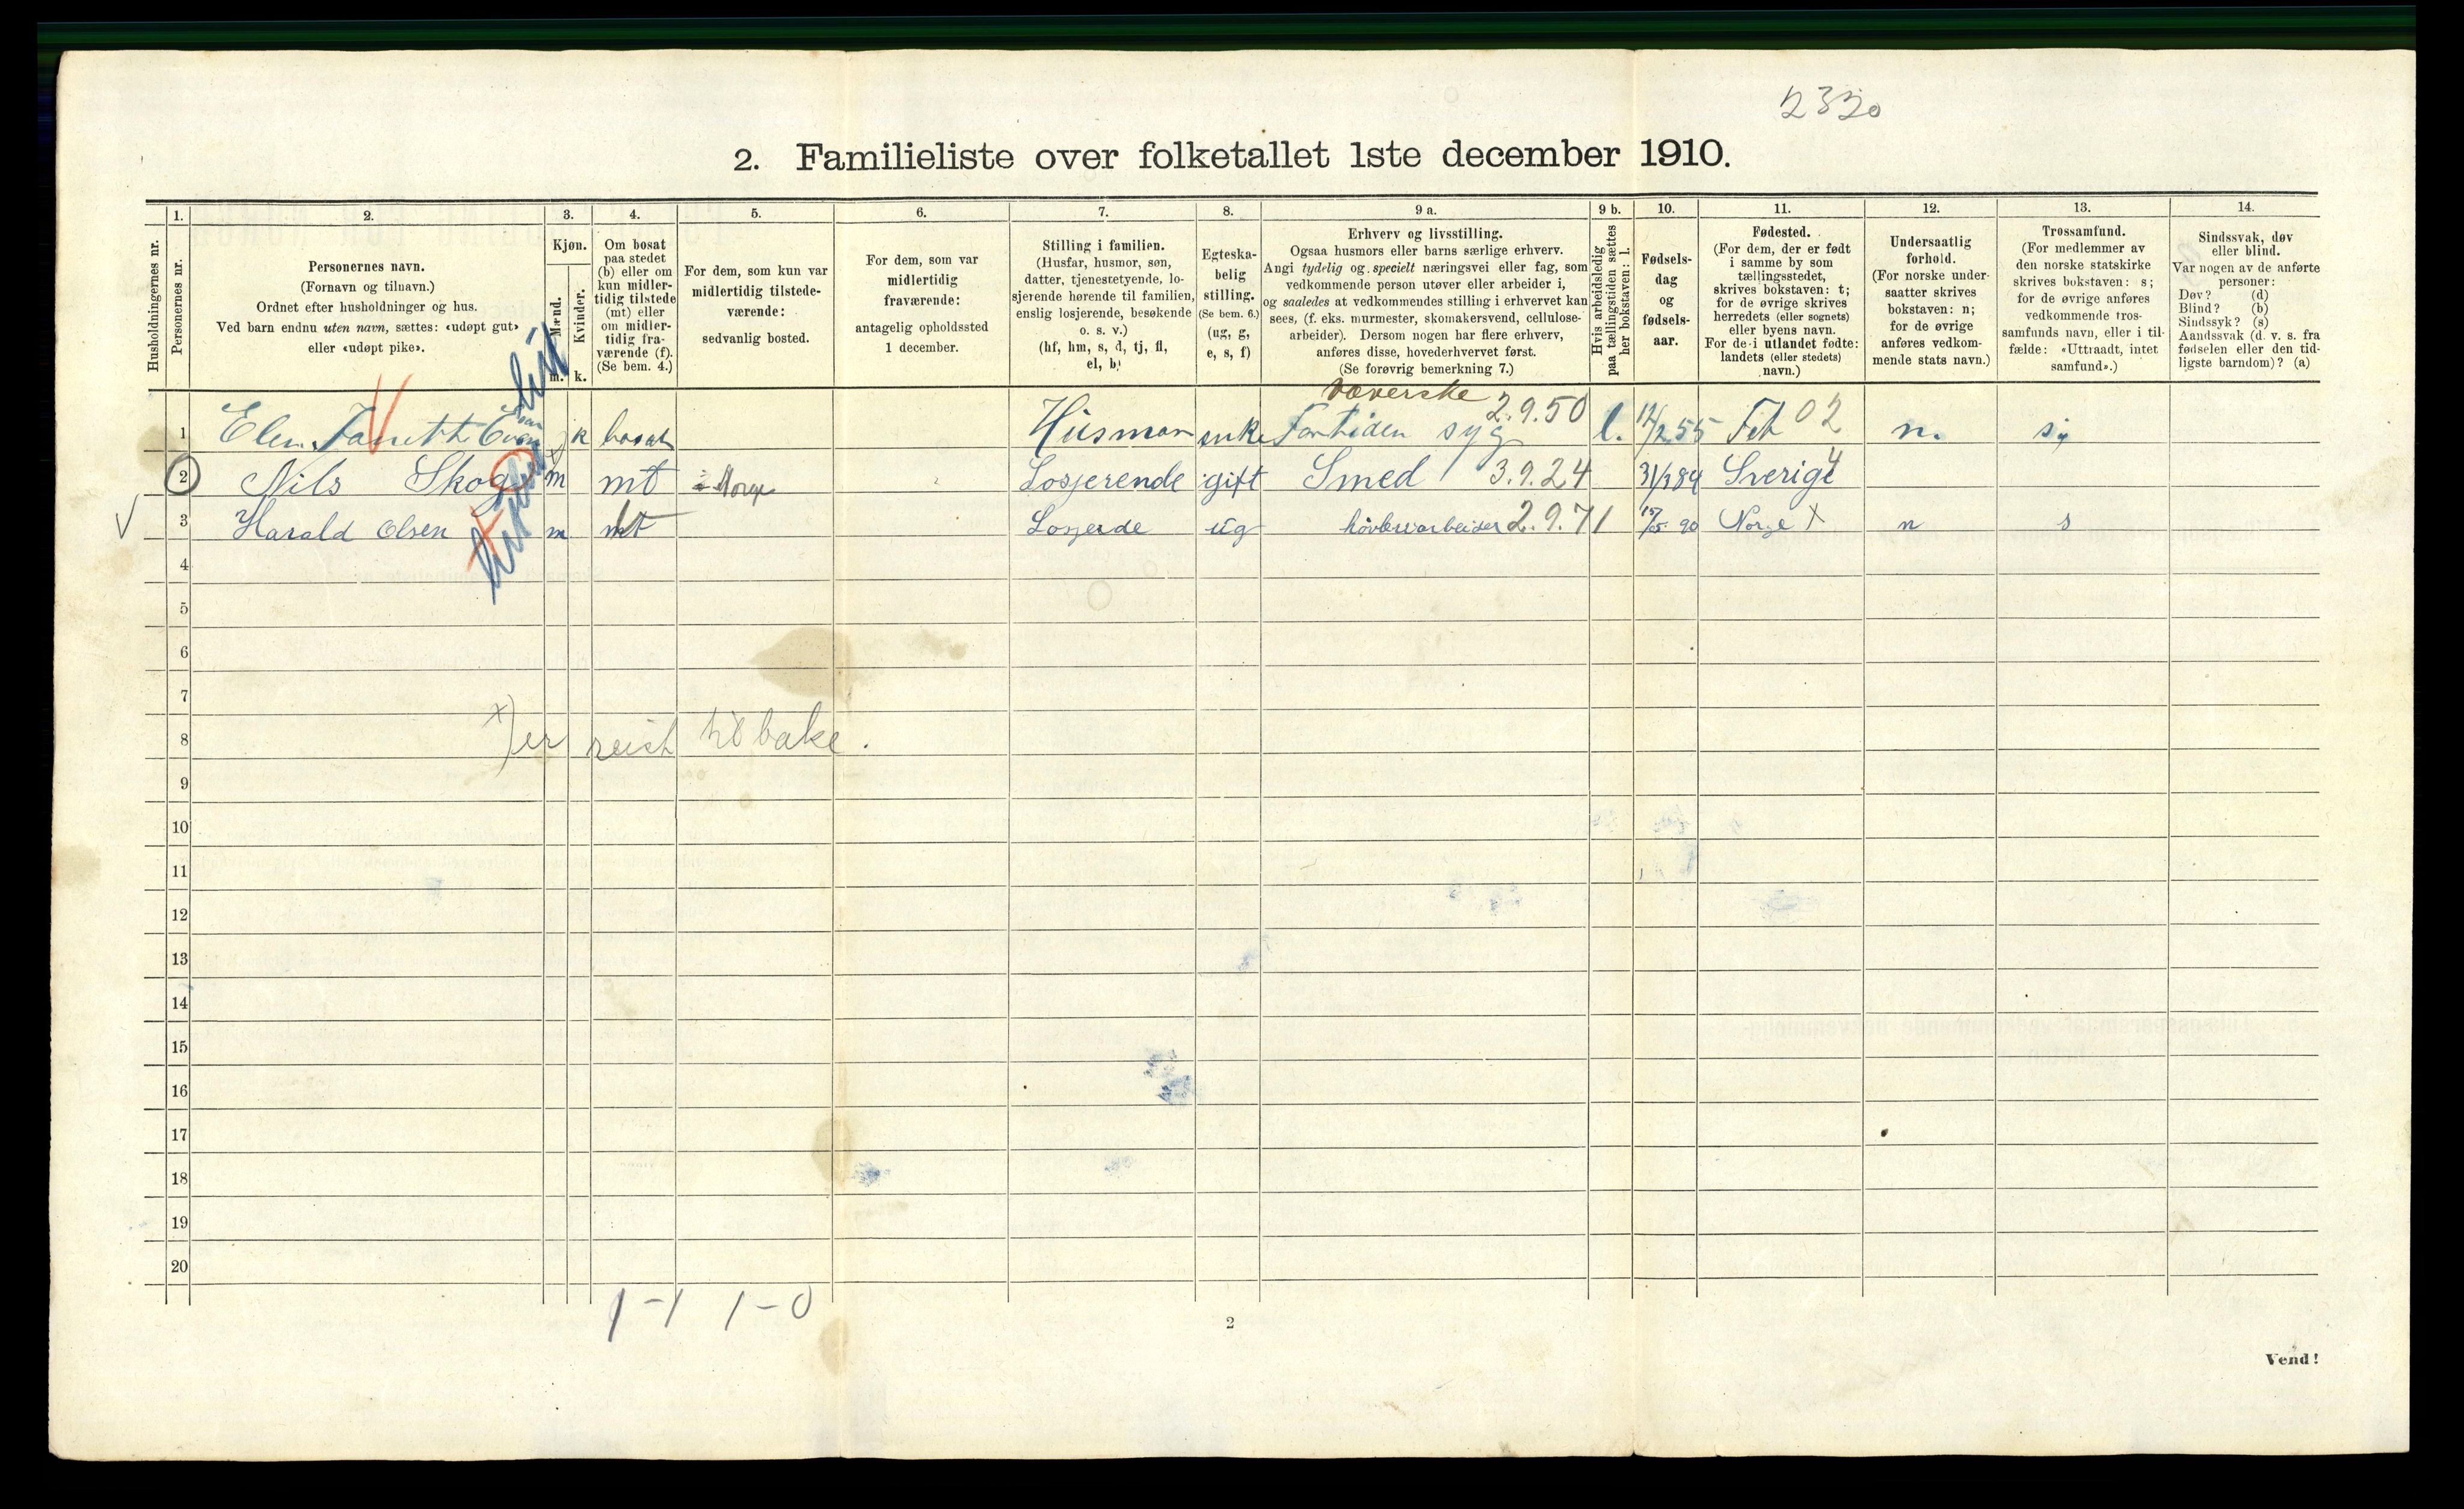 2330
2. Familieliste over folketallet 1ste december 1910.
Husholdningernes nr.
1.
Personernes nr.
2.
Personernes navn.
(Fornavn og tilnavn.)
Ordnet efter husholdninger og hus.
Ved barn endnu uten navn, sættes: «udøpt gut»
eller «udøpt pike».
3.
Kjøn.
Mænd.
Kvinder.
m.
k.
4.
Om bosat
paa stedet
(b) eller om
kun midler-
tidig tilstede
(mt) eller
om midler-
tidig fra-
værende (f).
(Se bem. 4.)
5.
For dem, som kun var
midlertidig tilstede-
værende:
sedvanlig bosted.
6.
For dem, som var
midlertidig
fraværende:
antagelig opholdssted
1 december.
7.
Stilling i familien.
(Husfar, husmor, søn,
datter, tjenestetyende, lo-
sjerende hørende til familien,
enslig losjerende, besøkende
o. s. v.)
(hf, hm, s, d, tj, fl,
el, b)
8.
Egteska-
belig
stilling.
(Se bem. 6.)
(ug, g,
e, s, f)
9 a.
Erhverv og livsstilling.
Ogsaa husmors eller barns særlige erhverv.
Angi tydelig og specielt næringsvei eller fag, som
vedkommende person utøver eller arbeider i,
og saaledes at vedkommendes stilling i erhvervet kan
sees, (f. eks. murmester, skomakersvend, cellulose-
arbeider). Dersom nogen har flere erhverv,
anføres disse, hovederhvervet først.
(Se forøvrig bemerkning 7.)
9 b.
Hvis arbeidsledig
paa tællingstiden sættes
her bokstaven: l.
10.
Fødsels-
dag
og
fødsels-
aar.
11.
Fødested.
(For dem, der er født
i samme by som
tællingsstedet,
skrives bokstaven: t;
for de øvrige skrives
herredets (eller sognets)
eller byens navn.
For de i utlandet fødte:
landets (eller stedets)
navn.)
12.
Undersaatlig
forhold.
(For norske under-
saatter skrives
bokstaven: n;
for de øvrige
anføres vedkom-
mende stats navn.)
13.
Trossamfund.
(For medlemmer av
den norske statskirke
skrives bokstaven: s;
for de øvrige anføres
vedkommende tros-
samfunds navn, eller i til-
fælde: «Uttraadt, intet
samfund».)
14.
Sindssvak, døv
eller blind.
Var nogen av de anførte
personer:
Døv? (d)
Blind? (b)
Sindssyk? (s)
Aandssvak (d. v. s. fra
fødselen eller den tid-
ligste barndom)? (a)
Væverske
1 k bosat Husmor enke Fortiden syg 2.9.50 l. 12/2 55 Fet 02 n. s
2 Nils Skog m mt Norge Losjerende gift Smed 3.9.24 31/1 84 Sverige 4
3 Harald Olsen m mt Losjerde ug høvleriarbeider 2.9.71 15/5 90 Norge X n s
4
5
6
7
8 x) er reist tilbake.
9
10
11
12
13
14
15
16
17
18
19
20
1-1 1-0
2
Vend!